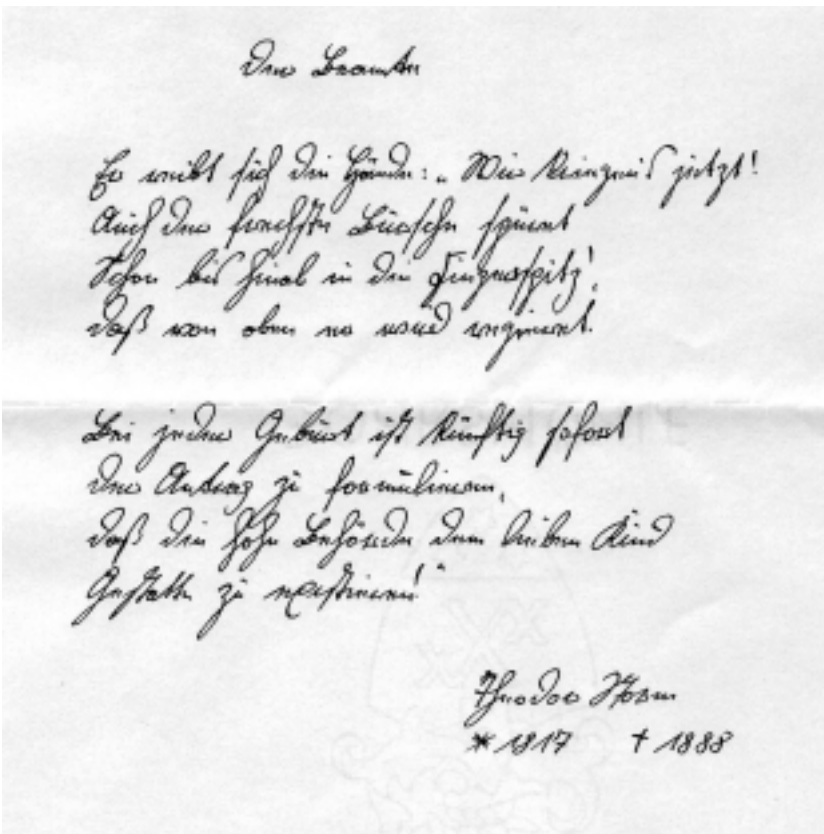 Der Beamte
Er reibt sich die Hände: „Wir kriegen's jetzt!
Auch der frechste Bursche spüret
Schon bis hinab in die Fingerspitz',
daß von oben er wird regieret.
Bei jeder Geburt ist künftig sofort
der Antrag zu formulieren,
daß die hohe Behörde dem lieben Kind
Gestatte zu existieren!"
Theodor Storm
* 1817 † 1888